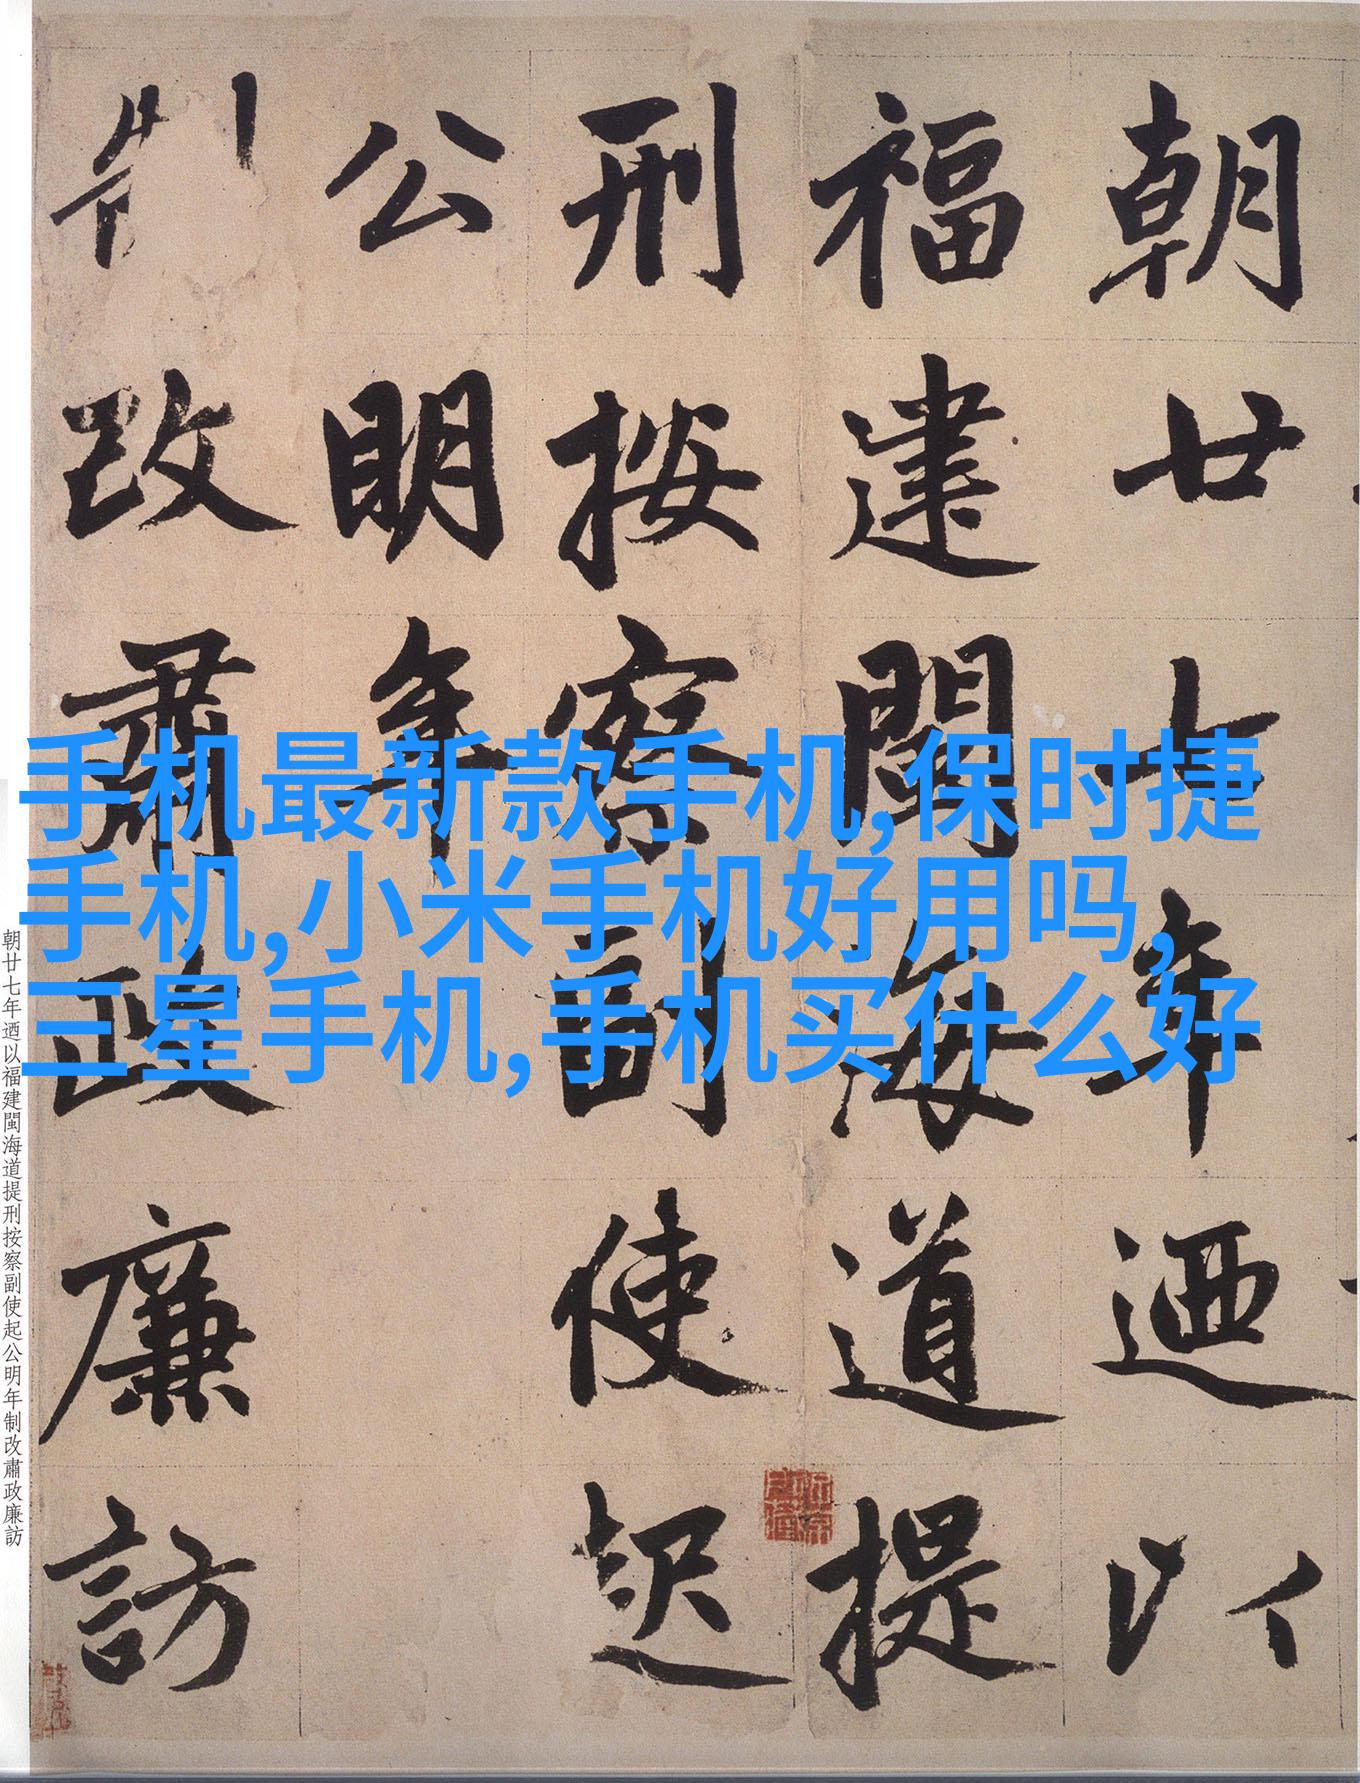 朝廿七年迺以
福建閩海道提
刑按察副使起
公明年
制改肅政廉訪
手机最新款手机,保时捷
手机,小米手机好用吗,
三星手机,手机买什么好
朝廿七年迺以福建閩海道提刑按察副使起公明年制改肅政廉訪